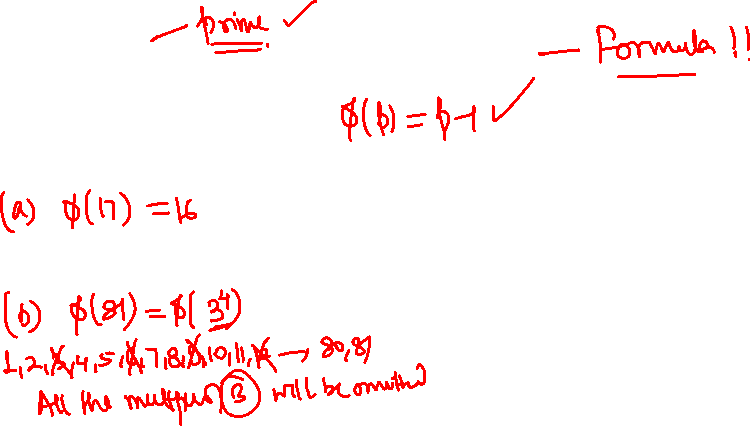 — prime. ✓
— Formula !!
φ(p) = p-1 ✓
(a) φ(17) = 16
(b) φ(81) = φ(3⁴)
1, 2, 3, 4, 5, 6, 7, 8, 9, 10, 11, 12 → 80, 81
All the multiples 3 will be omitted